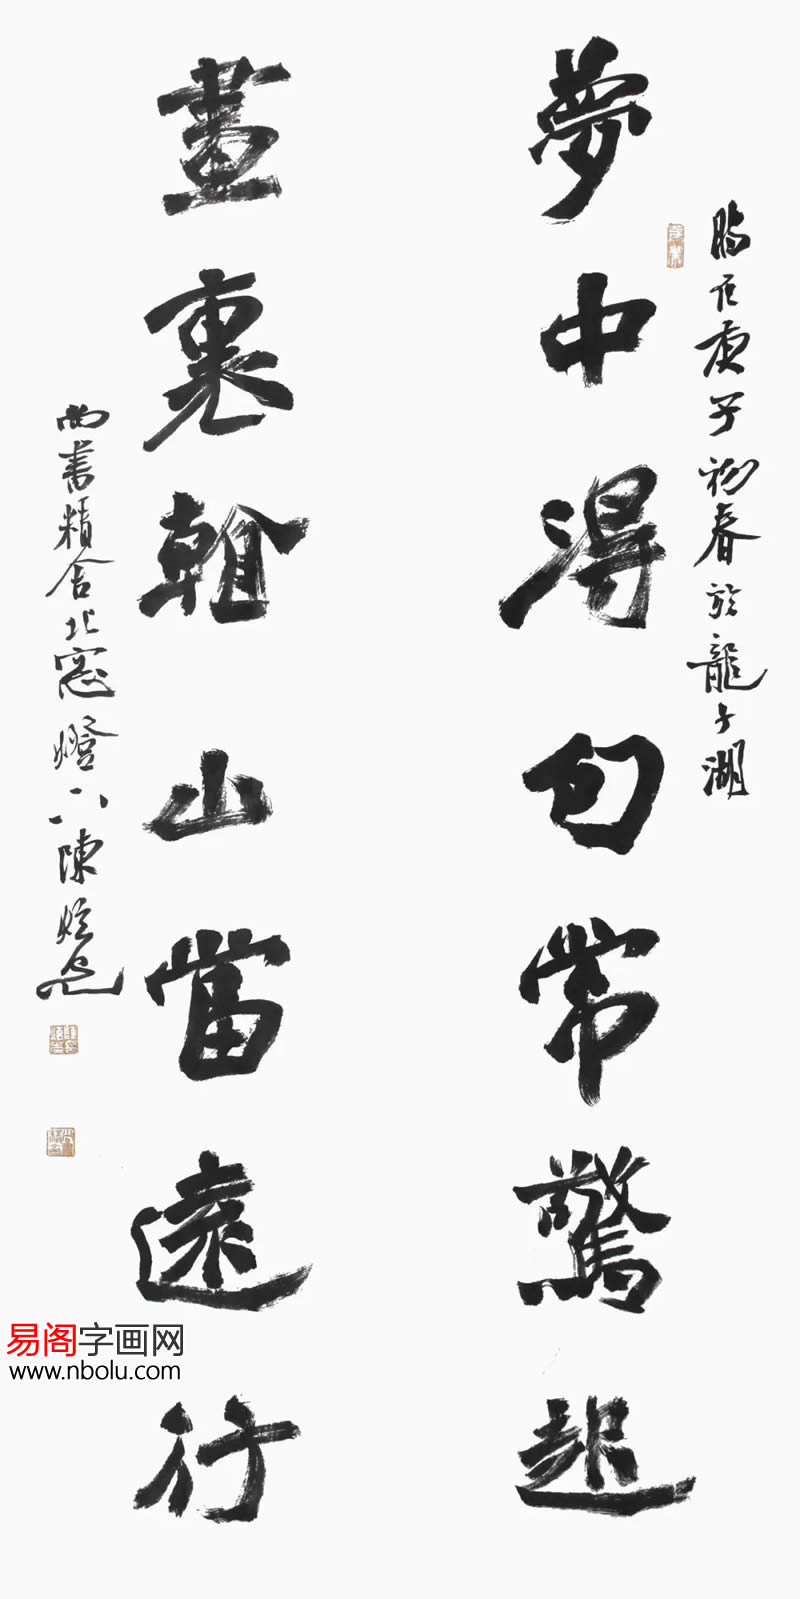 夢中得句常驚起
時在庚子初春於龍子湖
畫裏看山當遠行
尚書精舍北窓燈下陳
易阁字画网
www.nbolu.com